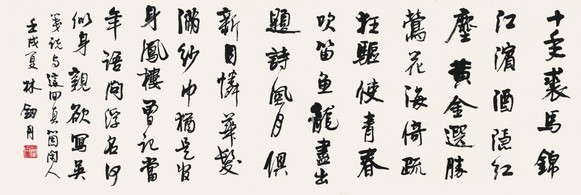 十年裘馬錦
江濱酒隱紅
塵黃金選勝
鶯花海倚疏
狂驅使青春
吹笛魚龍盡出
題詩風月俱
新自憐華髮
滿紗巾猶是官
身鳳樓曾記當
年語問浮名何
似身親欲寫吳
箋說與這回真箇閒人
壬戌夏林劍丹